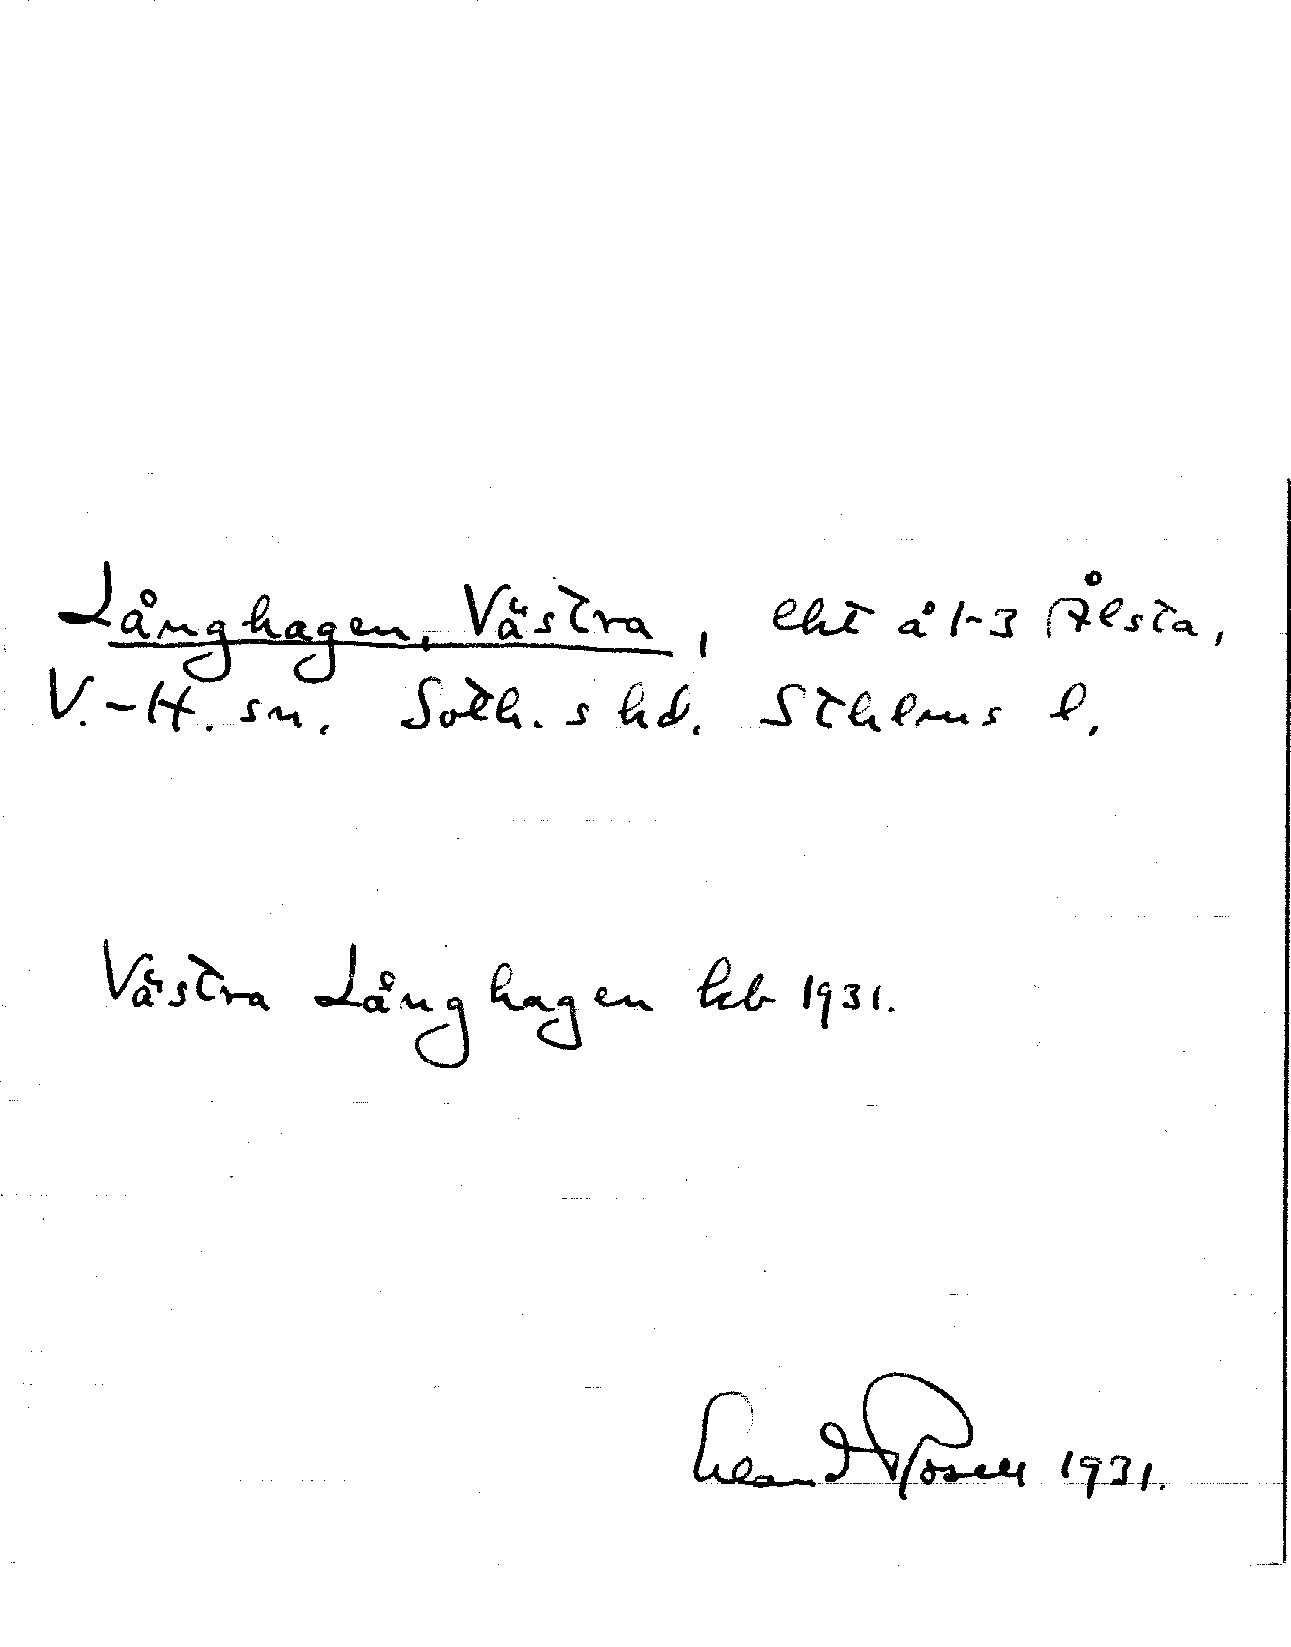 Långhagen, Västra, lht å 1-3 Ålsta,
V.-H. sn. Soth. s hd. Sthlms l.
Västra Långhagen kb 1931.
Erland Rosell 1931.